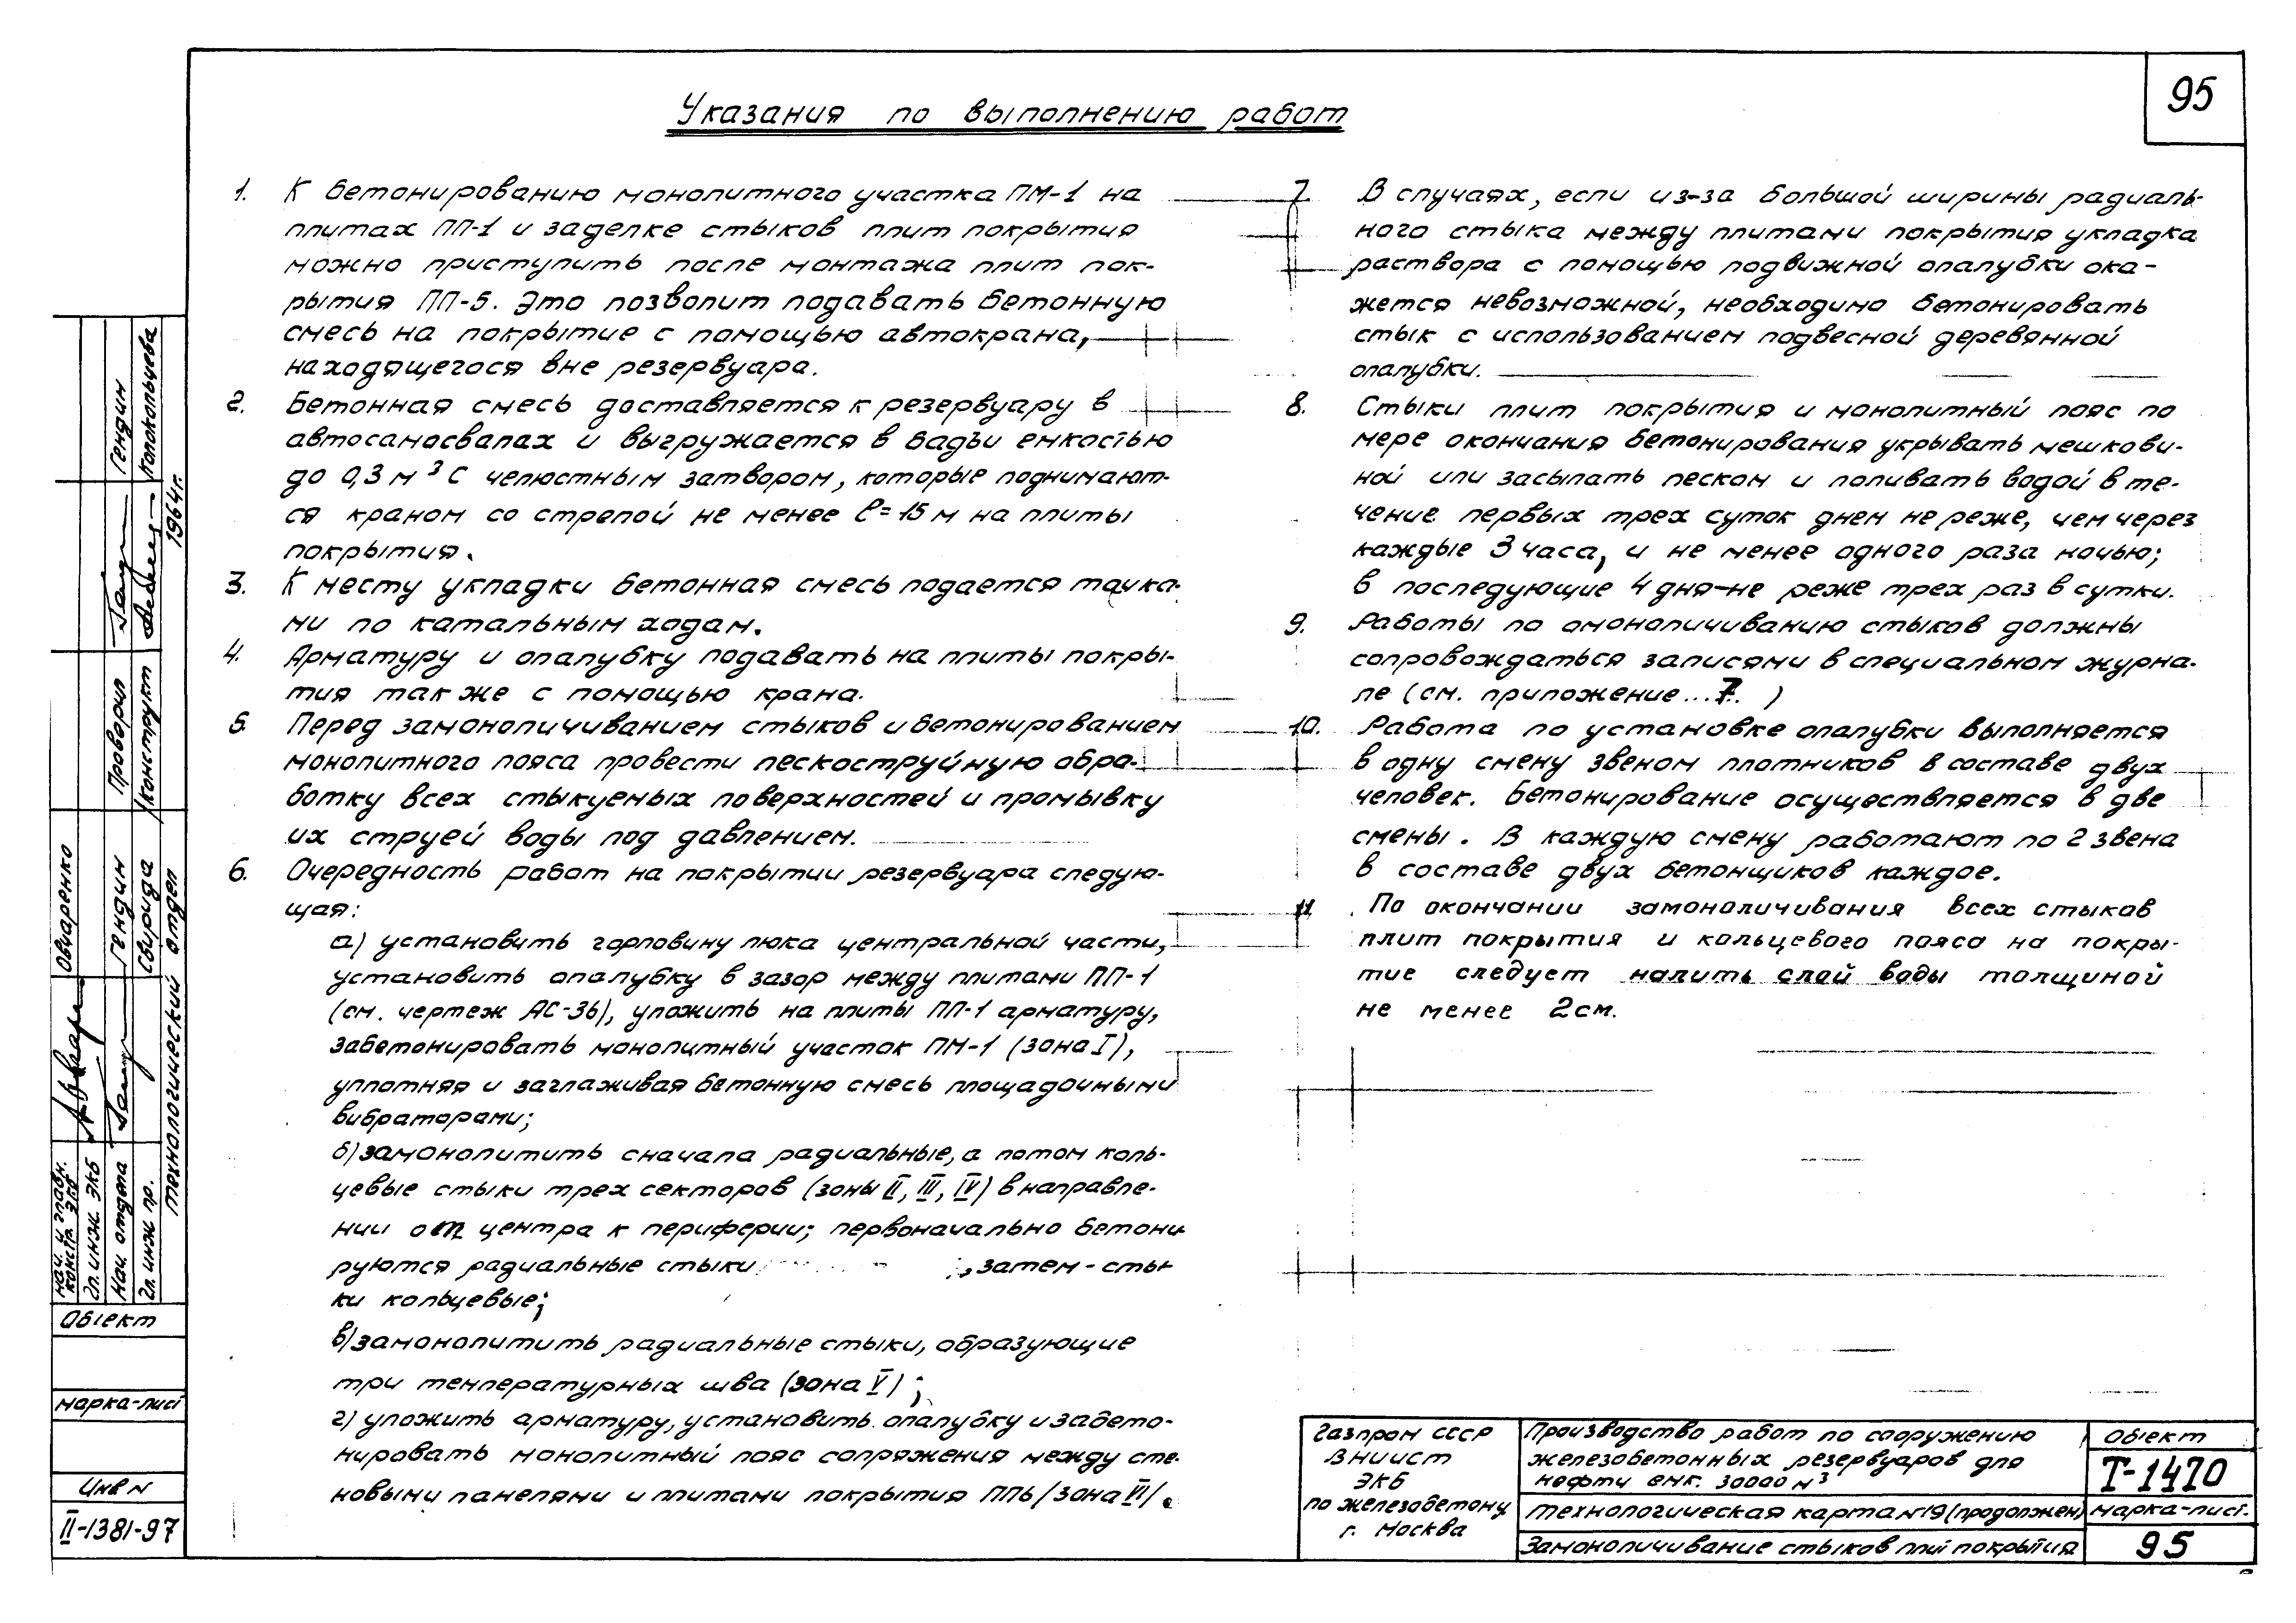 95
Указания по выполнению работ
1. К бетонированию монолитного участка ПМ-1 на
плитах ПП-1 и заделке стыков плит покрытия
можно приступить после монтажа плит пок-
рытия ПП-5. Это позволит подавать бетонную
смесь на покрытие с помощью автокрана,
находящегося вне резервуара.
2. Бетонная смесь доставляется к резервуару в
автосамосвалах и выгружается в бадьи емкостью
до 0,3 м³ с челюстным затвором, которые поднимают-
ся краном со стрелой не менее ℓ=15 м на плиты
покрытия.
3. К месту укладки бетонная смесь подается тачка-
ми по катальным ходам.
4. Арматуру и опалубку подавать на плиты покры-
тия так же с помощью крана.
5. Перед замоноличиванием стыков и бетонированием
монолитного пояса провести пескоструйную обра-
ботку всех стыкуемых поверхностей и промывку
их струей воды под давлением.
6. Очередность работ на покрытии резервуара следую-
щая:
а) установить горловину люка центральной части,
установить опалубку в зазор между плитами ПП-1
(см. чертеж АС-36), уложить на плиты ПП-1 арматуру,
забетонировать монолитный участок ПМ-1 (зона I),
уплотняя и заглаживая бетонную смесь площадочными
вибраторами;
б) замонолитить сначала радиальные, а потом коль-
цевые стыки трех секторов (зоны II, III, IV) в направле-
нии от центра к периферии; первоначально бетони-
руются радиальные стыки , затем - сты-
ки кольцевые;
в) замонолитить радиальные стыки, образующие
три температурных шва (зона V);
г) уложить арматуру, установить опалубку и забето-
нировать монолитный пояс сопряжения между сте-
новыми панелями и плитами покрытия ПП6 /зона VI/.
7. В случаях, если из-за большой ширины радиаль-
ного стыка между плитами покрытия укладка
раствора с помощью подвижной опалубки ока-
жется невозможной, необходимо бетонировать
стык с использованием подвесной деревянной
опалубки.
8. Стыки плит покрытия и монолитный пояс по
мере окончания бетонирования укрывать мешкови-
ной или засыпать песком и поливать водой в те-
чение первых трех суток днем не реже, чем через
каждые 3 часа, и не менее одного раза ночью;
в последующие 4 дня-не реже трех раз в сутки.
9. Работы по омоноличиванию стыков должны
сопровождаться записями в специальном журна-
ле (см. приложение ... 7. )
10. Работа по установке опалубки выполняется
в одну смену звеном плотников в составе двух
человек. Бетонирование осуществляется в две
смены. В каждую смену работают по 2 звена
в составе двух бетонщиков каждое.
11. По окончании замоноличивания всех стыков
плит покрытия и кольцевого пояса на покры-
тие следует налить слой воды толщиной
не менее 2см.
Газпром СССР
ВНИИСТ
ЭКБ
по железобетону
г. Москва
Производство работ по сооружению
железобетонных резервуаров для
нефти емк. 30000 м³
Технологическая карта №19 (продолжен)
Замоноличивание стыков плит покрытия
Объект
Т-1470
марка-лист.
95
Нач. и главн.
констр. ЭКБ
Гл. инж. ЭКБ
Нач. отдела
Гл. инж. пр.
Овчаренко
Гендин
Свирида
Технологический отдел
Проверил
Конструкт
Гендин
Колокольцева
1964г.
Объект
марка-лист
Инв N
II-1381-97